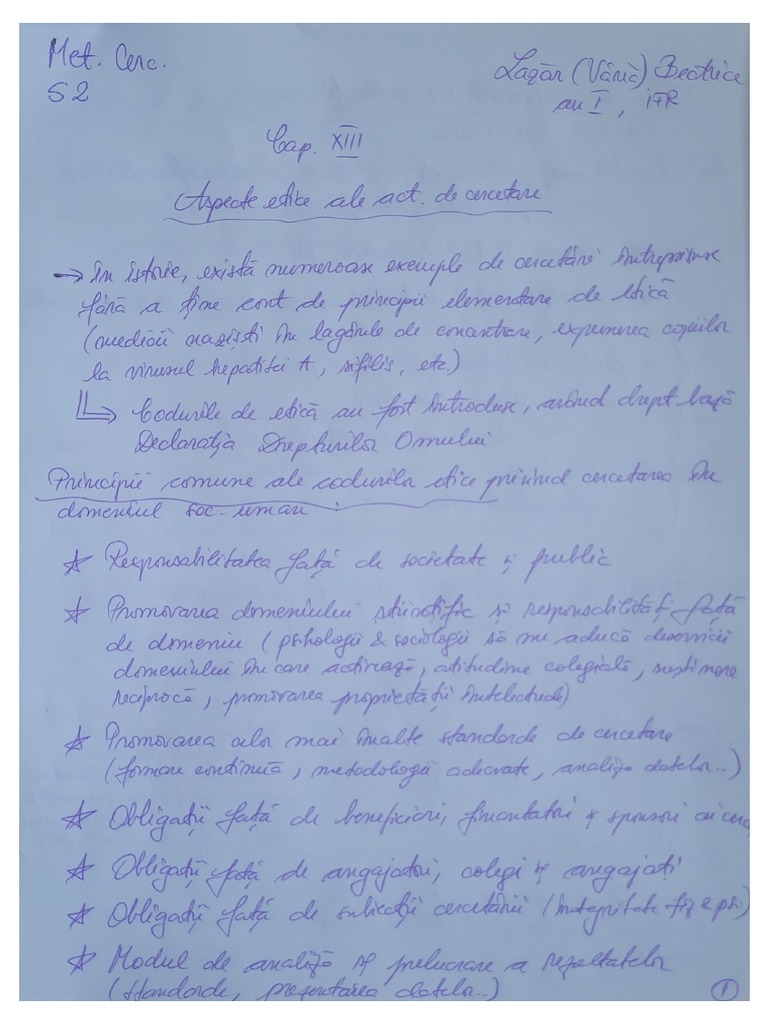 Met. Cerc.
S2
Lazăr (Vână) Beatrice
an I, IFR
Cap. XIII
Aspecte etice ale act. de cercetare
→ În istorie, există numeroase exemple de cercetări întreprinse
fără a ține cont de principii elementare de etică
(medicii naziști în lagărele de concentrare, expunerea copiilor
la virusul hepatitei A, sifilis, etc.)
Codurile de etică au fost introduse, având drept bază
Declarația Drepturilor Omului
Principii comune ale codurilor etice privind cercetarea în
domeniul soc-uman :
☆ Responsabilitatea față de societate și public
☆ Promovarea domeniului științific și responsabilități față
de domeniu (psihologii & sociologii să nu aducă deservicii
domeniului în care activează, atitudine colegială, susținere
reciprocă, promovarea proprietății intelectuale)
☆ Promovarea celor mai înalte standarde de cercetare
(formare continuă, metodologii adecvate, analiza datelor..)
☆ Obligații față de beneficiari, finanțatori și sponsori ai cerc
☆ Obligații față de angajatori, colegi și angajați
☆ Obligații față de subiecții cercetării (integritate fiz & psi.)
☆ Modul de analiză și prelucrare a rezultatelor
(standarde, prezentarea datelor..)
1